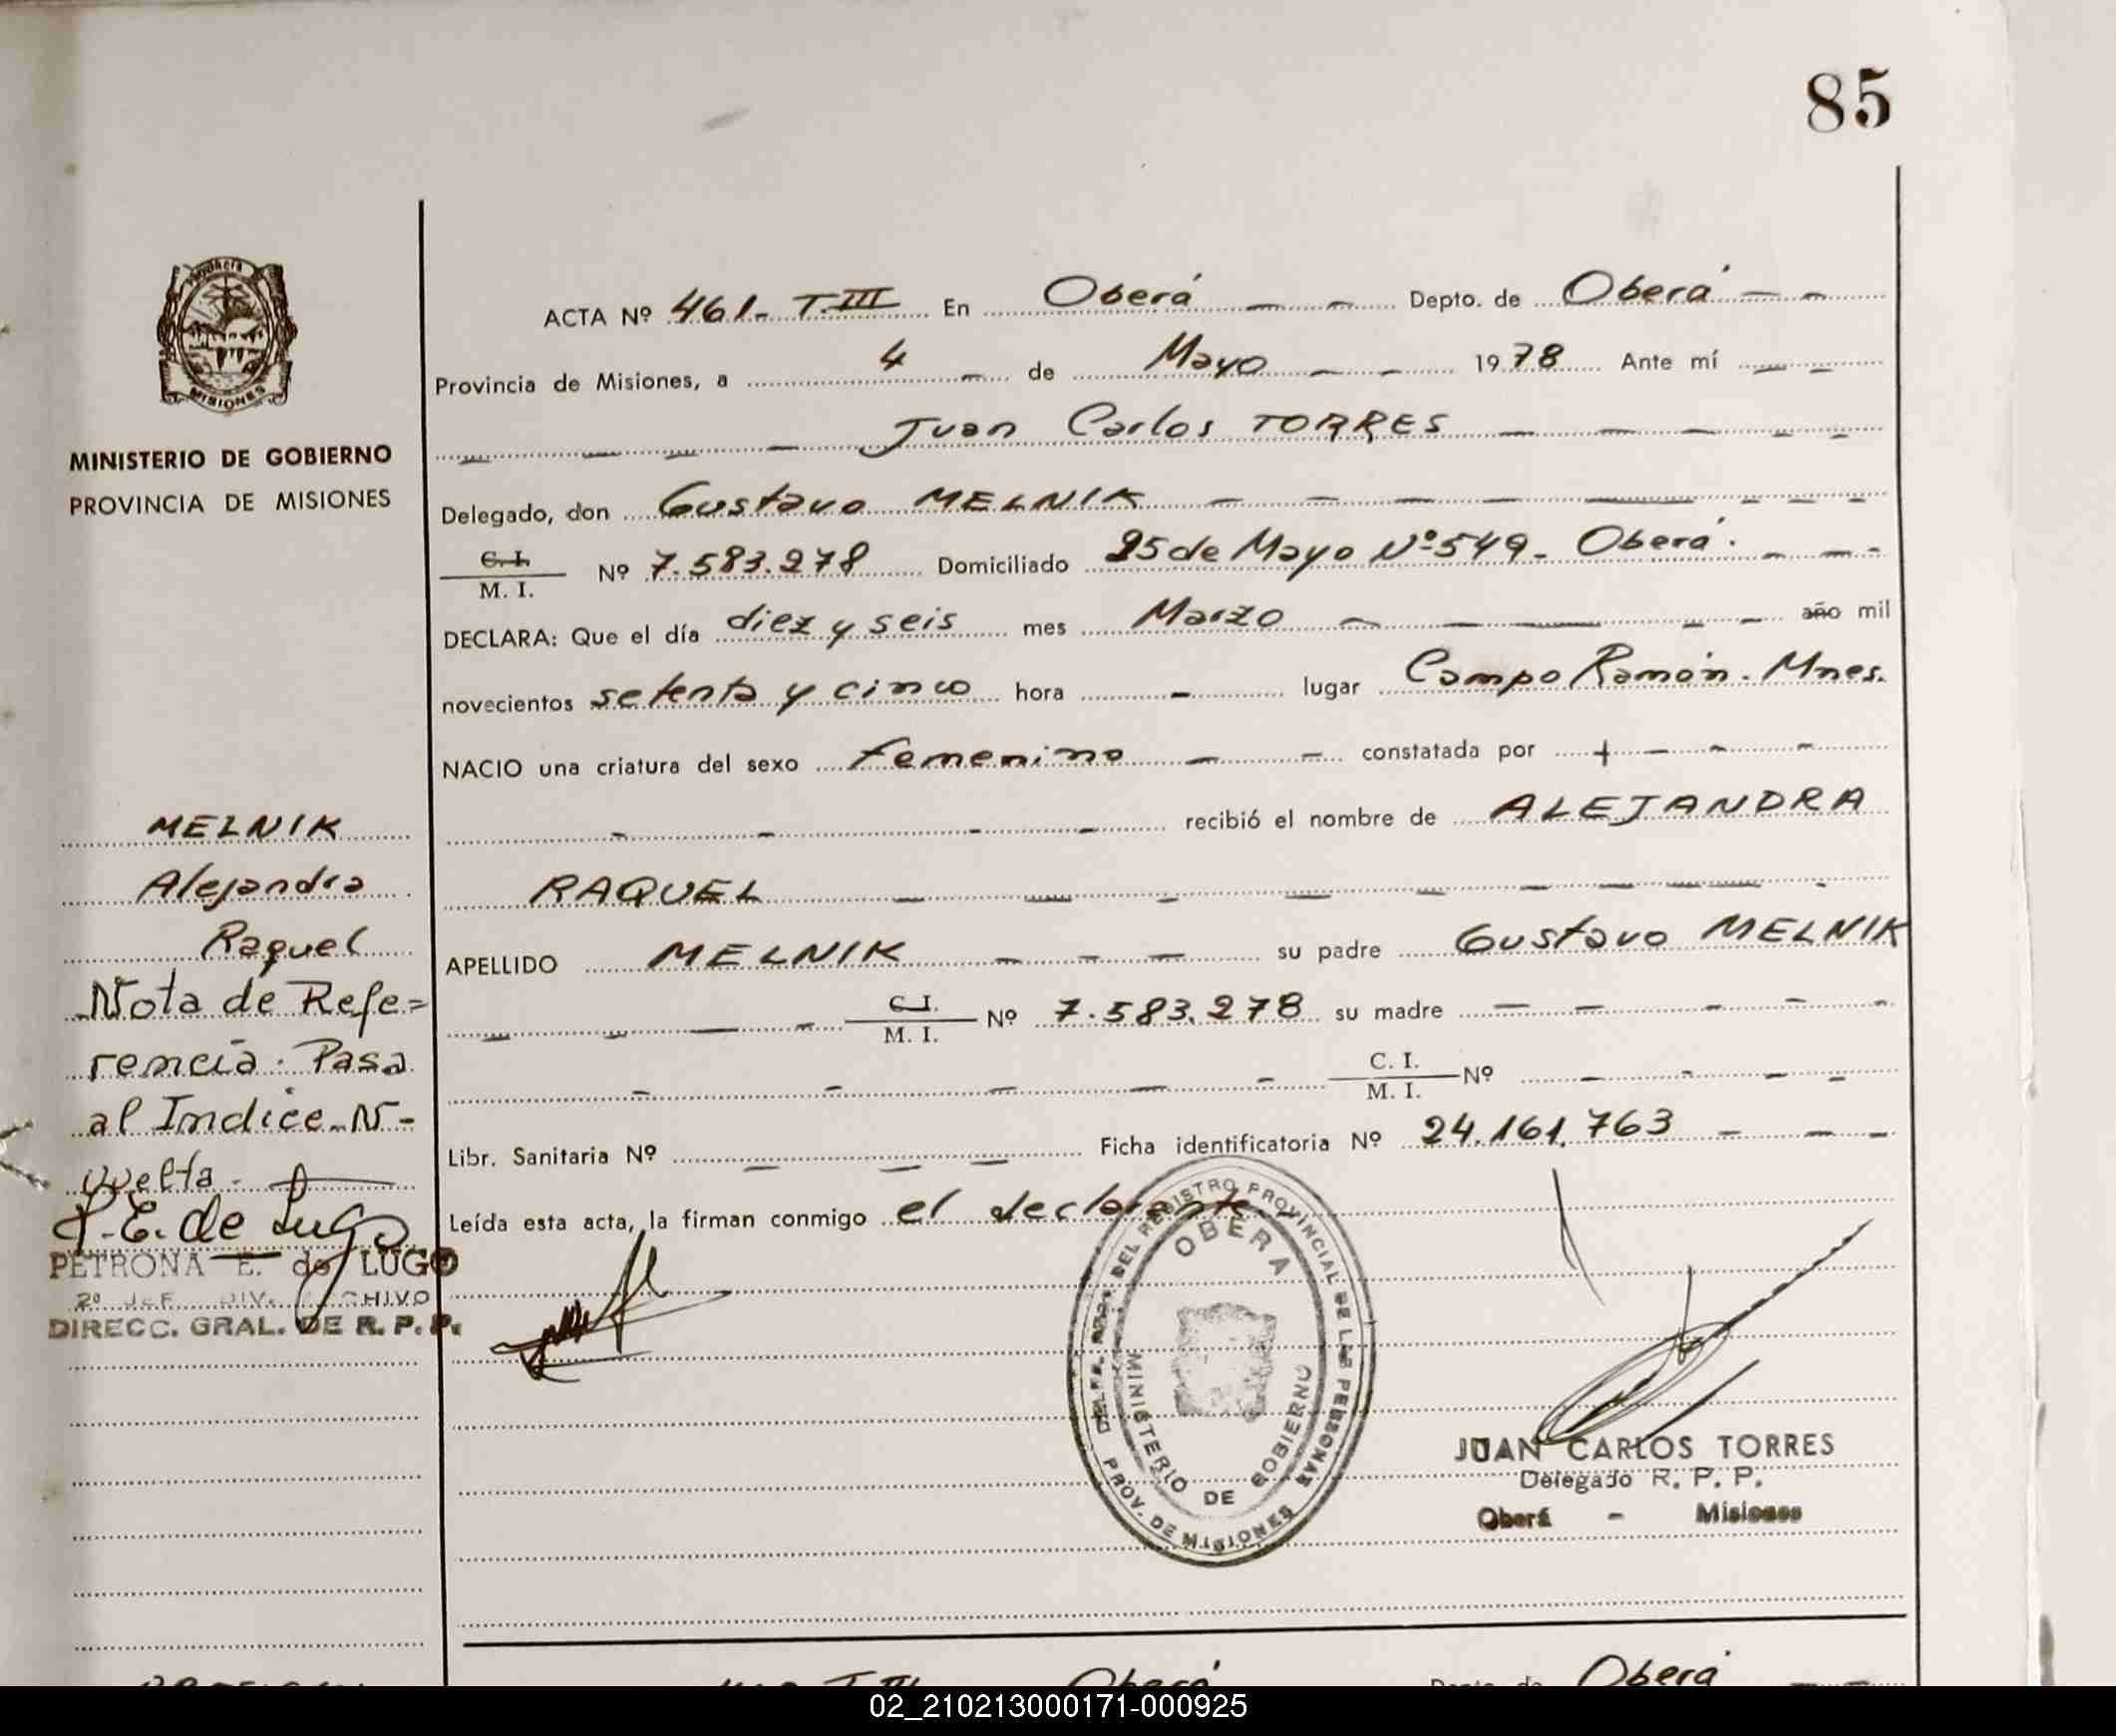 85
MISIONES
MINISTERIO DE GOBIERNO
PROVINCIA DE MISIONES
ACTA Nº 461- T.III En Oberá Depto. de Oberá
Provincia de Misiones, a 4 de Mayo 1978 Ante mí
Juan Carlos TORRES
Delegado, don Gustavo MELNIK
C.I.
M. I. Nº 7.583.278 Domiciliado 25 de Mayo Nº 549- Oberá.
DECLARA: Que el día diez y seis mes Marzo año mil
novecientos setenta y cinco hora - lugar Campo Ramón. Mnes.
NACIO una criatura del sexo femenino constatada por
recibió el nombre de ALEJANDRA
RAQUEL
APELLIDO MELNIK su padre Gustavo MELNIK
C.I.
M. I. Nº 7.583.278 su madre
C. I.
M. I. Nº
Libr. Sanitaria Nº Ficha identificatoria Nº 24.161.763
Leída esta acta, la firman conmigo el declarante
MELNIK
Alejandra
Raquel
Nota de Refe=
rencia. Pasa
al Indice N-
vuelta -
P.E. de Lugo
PETRONA E. de LUGO
2º JEF. DIV. ARCHIVO
DIRECC. GRAL. DE R. P. P.
DEL REGISTRO PROVINCIAL DE LAS PERSONAS
PROV. DE MISIONES
OBERA
MINISTERIO DE GOBIERNO
JUAN CARLOS TORRES
Delegado R. P. P.
Oberá - Misiones
T.III Oberá Depto. de Oberá
02_210213000171-000925